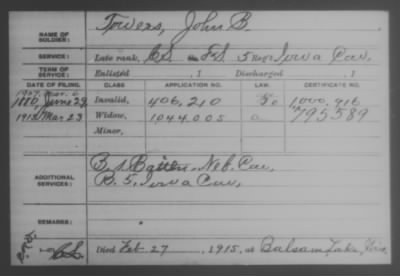 NAME OF SOLDIER: Towers, John B.
SERVICE: Late rank, F&S 5 Reg't Iowa Cav.
TERM OF SERVICE: Enlisted , 1 Discharged , 1
DATE OF FILING. CLASS. APPLICATION NO. LAW. CERTIFICATE NO.
1907, Mar. 6
1880, June 29 Invalid, 406,210 1000,916
1915, Mar 23 Widow, 1044,005 795,589
Minor,
ADDITIONAL SERVICES: B. 1 Batt'n Neb. Cav.
B. 5, Iowa Cav.
REMARKS:
Died Feb 27, 1915, at Balsam Lake, Wis.